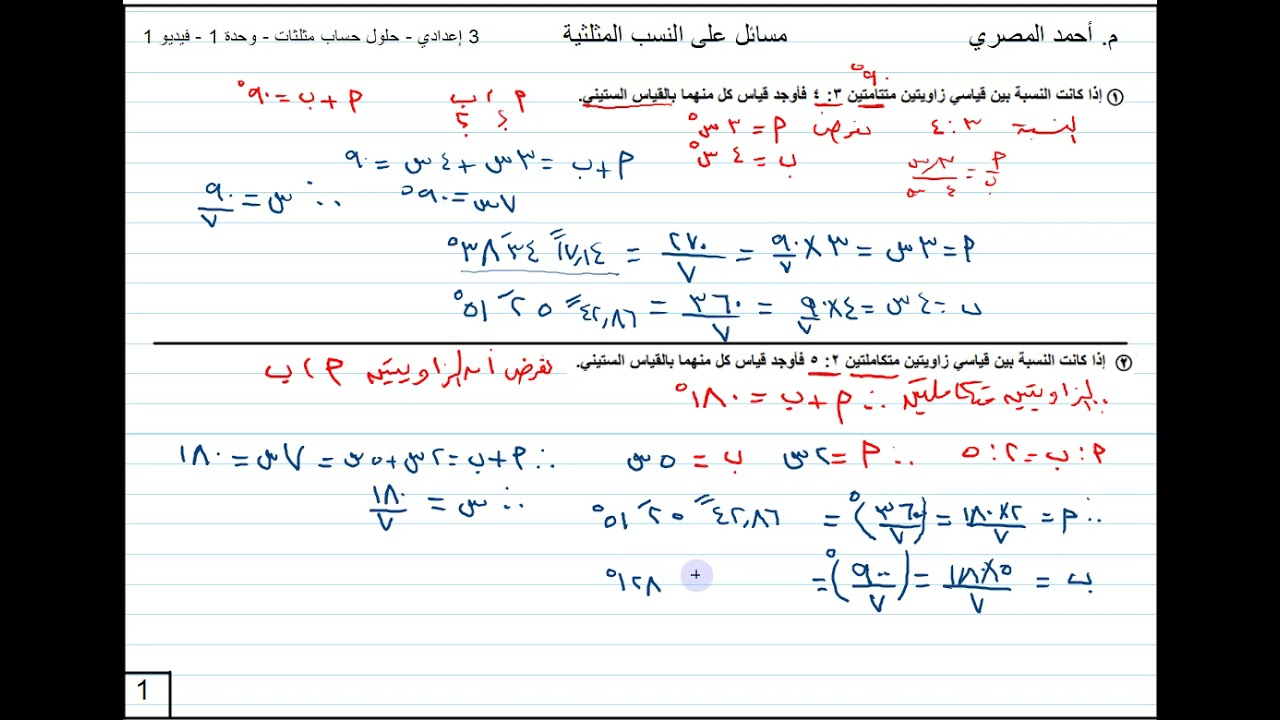 م. أحمد المصري مسائل على النسب المثلثية 3 إعدادي - حلول حساب مثلثات - وحدة 1 - فيديو 1
٩٠°
① إذا كانت النسبة بين قياسي زاويتين متتامتين ٣ : ٤ فأوجد قياس كل منهما بالقياس الستيني. م ، ب م + ب = ٩٠°
؟ ؟
النسبة ٣ : ٤ نفرض م = ٣ س°
م/ب = ٣س/٤س ب = ٤ س°
م + ب = ٣س + ٤س = ٩٠
٧س = ٩٠° ∴ س = ٩٠/٧
م = ٣س = ٣ × ٩٠/٧ = ٢٧٠/٧ = ١٧,١٤ ً ٣٤ َ ٣٨°
ب = ٤س = ٤ × ٩٠/٧ = ٣٦٠/٧ = ٤٢,٨٦ ً ٢٥ َ ٥١°
② إذا كانت النسبة بين قياسي زاويتين متكاملتين ٢ : ٥ فأوجد قياس كل منهما بالقياس الستيني. نفرض أن الزاويتين م ، ب
∵ الزاويتين متكاملتين ∴ م + ب = ١٨٠°
م : ب = ٢ : ٥ ∴ م = ٢س ب = ٥س ∴ م + ب = ٢س + ٥س = ٧س = ١٨٠
∴ س = ١٨٠/٧
∴ م = ٢×١٨٠/٧ = (٣٦٠/٧)° = ٤٢,٨٦ ً ٢٥ َ ٥١°
ب = ٥×١٨٠/٧ = (٩٠٠/٧)° = ١٢٨°
1